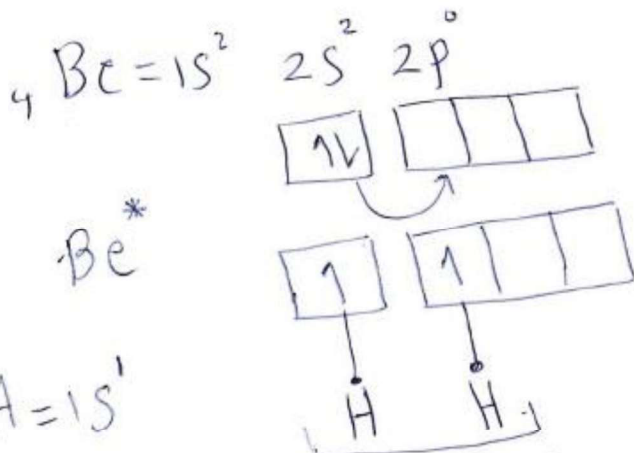 ₄Be = 1s² 2s² 2p⁰
1L
Be*
1 1
H = 1s¹
H H